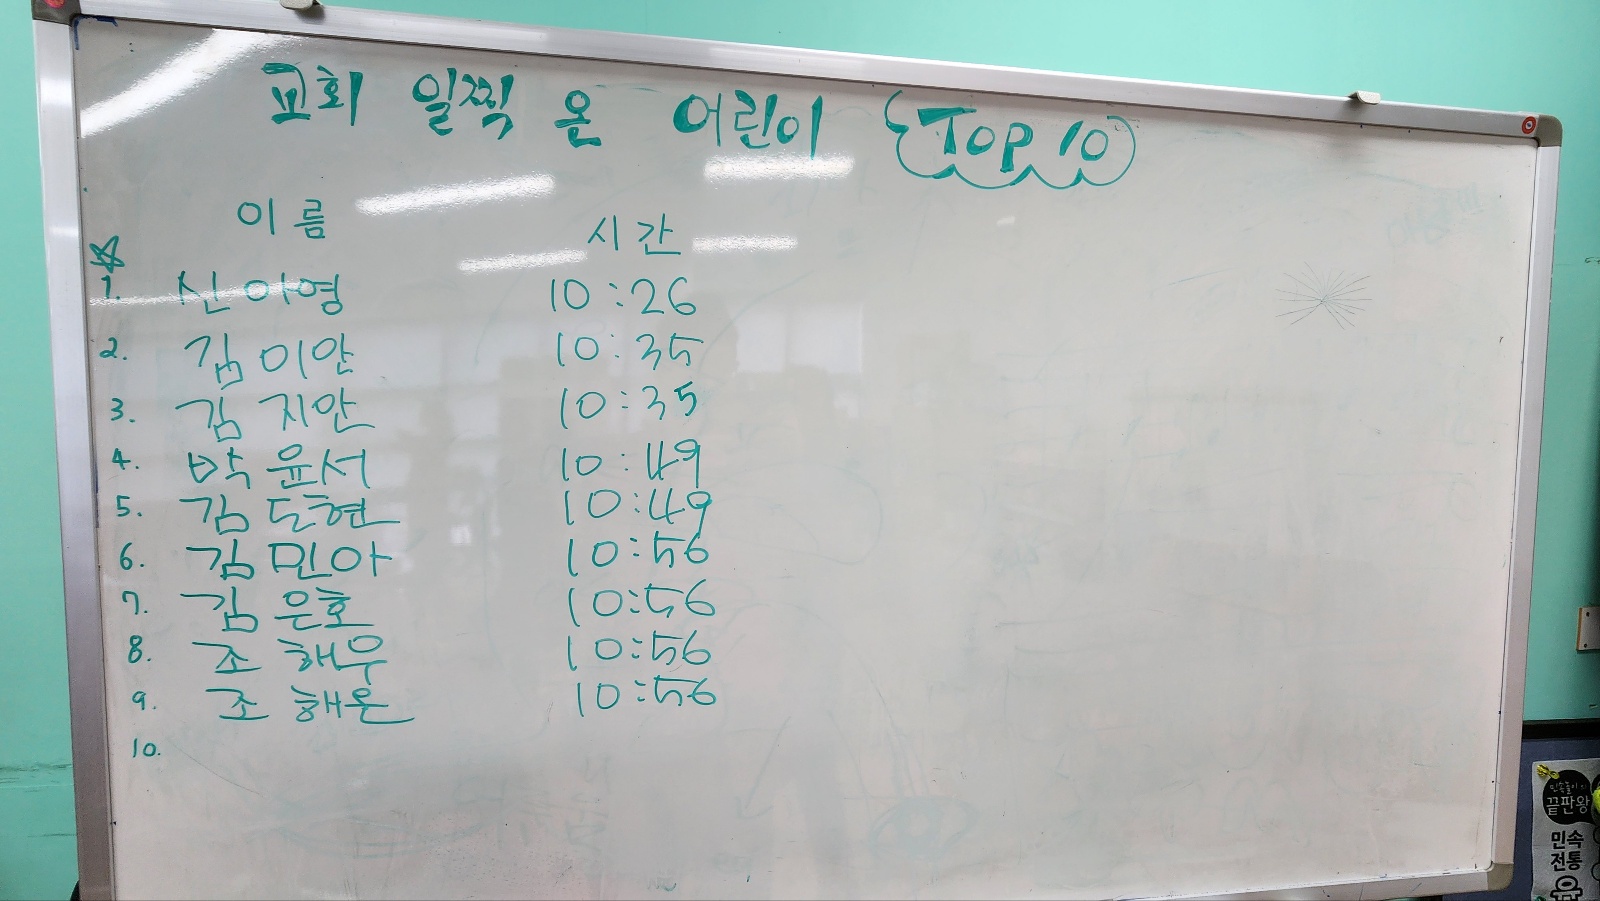 교회 일찍 온 어린이 Top 10
이름 시간
1. 신아영 10:26
2. 김이안 10:35
3. 김지안 10:35
4. 박윤서 10:49
5. 김도현 10:49
6. 김민아 10:56
7. 김은호 10:56
8. 조해우 10:56
9. 조해온 10:56
10.
끝판왕
민속
전통